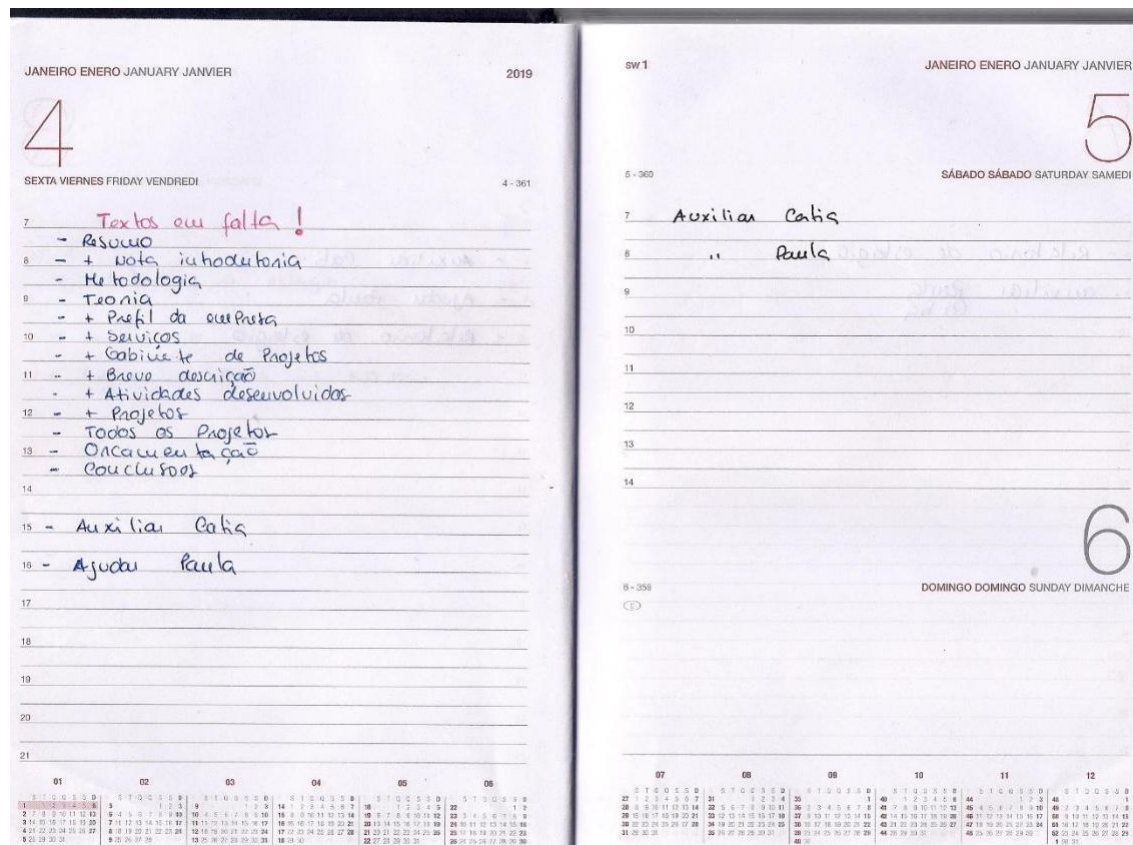 JANEIRO ENERO JANUARY JANVIER 2019
4
SEXTA VIERNES FRIDAY VENDREDI 4 - 361
7 Textos em falta !
- Resumo
8 - + Nota introdutoria
- Metodologia
9 - Teoria
- + Prefil da empresa
10 - + Serviços
- + Gabinete de Projetos
11 - + Breve descrição
- + Atividades desenvolvidos
12 - + Projetos
- Todos os Projetos
13 - Orcamentação
- Conclusoes
14
15 - Auxiliar Catia
16 - Ajudar Paula
17
18
19
20
21
01 02 03 04 05 06
sw 1 JANEIRO ENERO JANUARY JANVIER
5
5 - 360 SÁBADO SÁBADO SATURDAY SAMEDI
7 Auxiliar Catia
8 " Paula
9
10
11
12
13
14
6
6 - 359 DOMINGO DOMINGO SUNDAY DIMANCHE
07 08 09 10 11 12